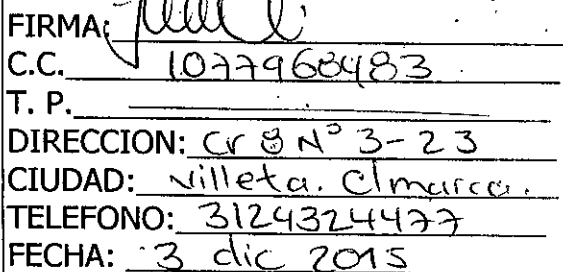 FIRMA:
C.C. 1077968483
T. P.
DIRECCION: Cr 8 N° 3-23
CIUDAD: Villeta. C/marca.
TELEFONO: 3124324477
FECHA: 3 dic 2015